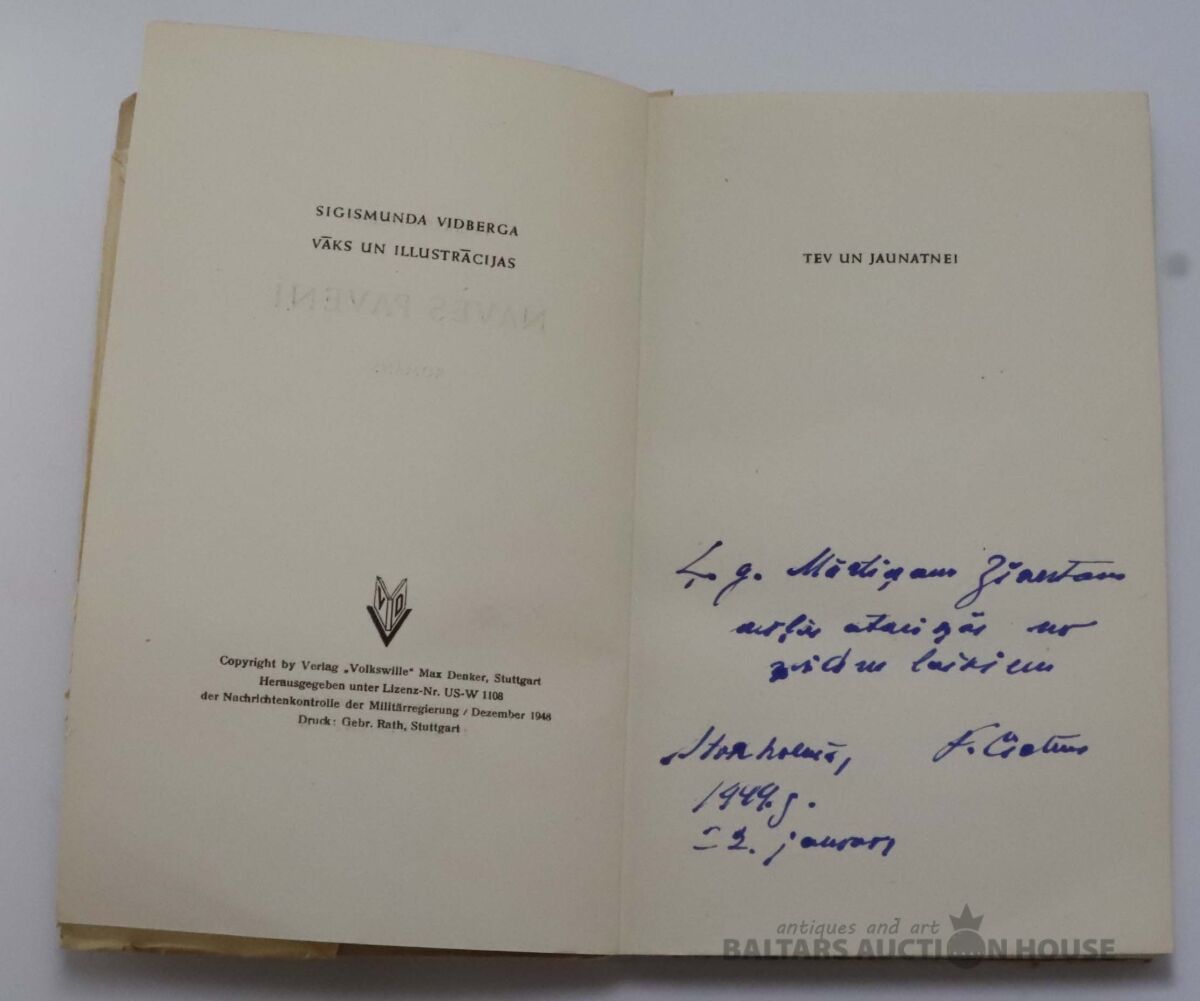 SIGISMUNDA VIDBERGA
VĀKS UN ILLUSTRĀCIJAS
NĀVES PAVĒNĪ
VD
Copyright by Verlag „Volkswille“ Max Denker, Stuttgart
Herausgegeben unter Lizenz-Nr. US-W 1108
der Nachrichtenkontrolle der Militärregierung / Dezember 1948
Druck: Gebr. Rath, Stuttgart
TEV UN JAUNATNEI
Ļ. g. Mārtiņam
no
laikiem
Stokholmā,
1949. g.
2. janvārī
antiques and art
BALTARS AUCTION HOUSE